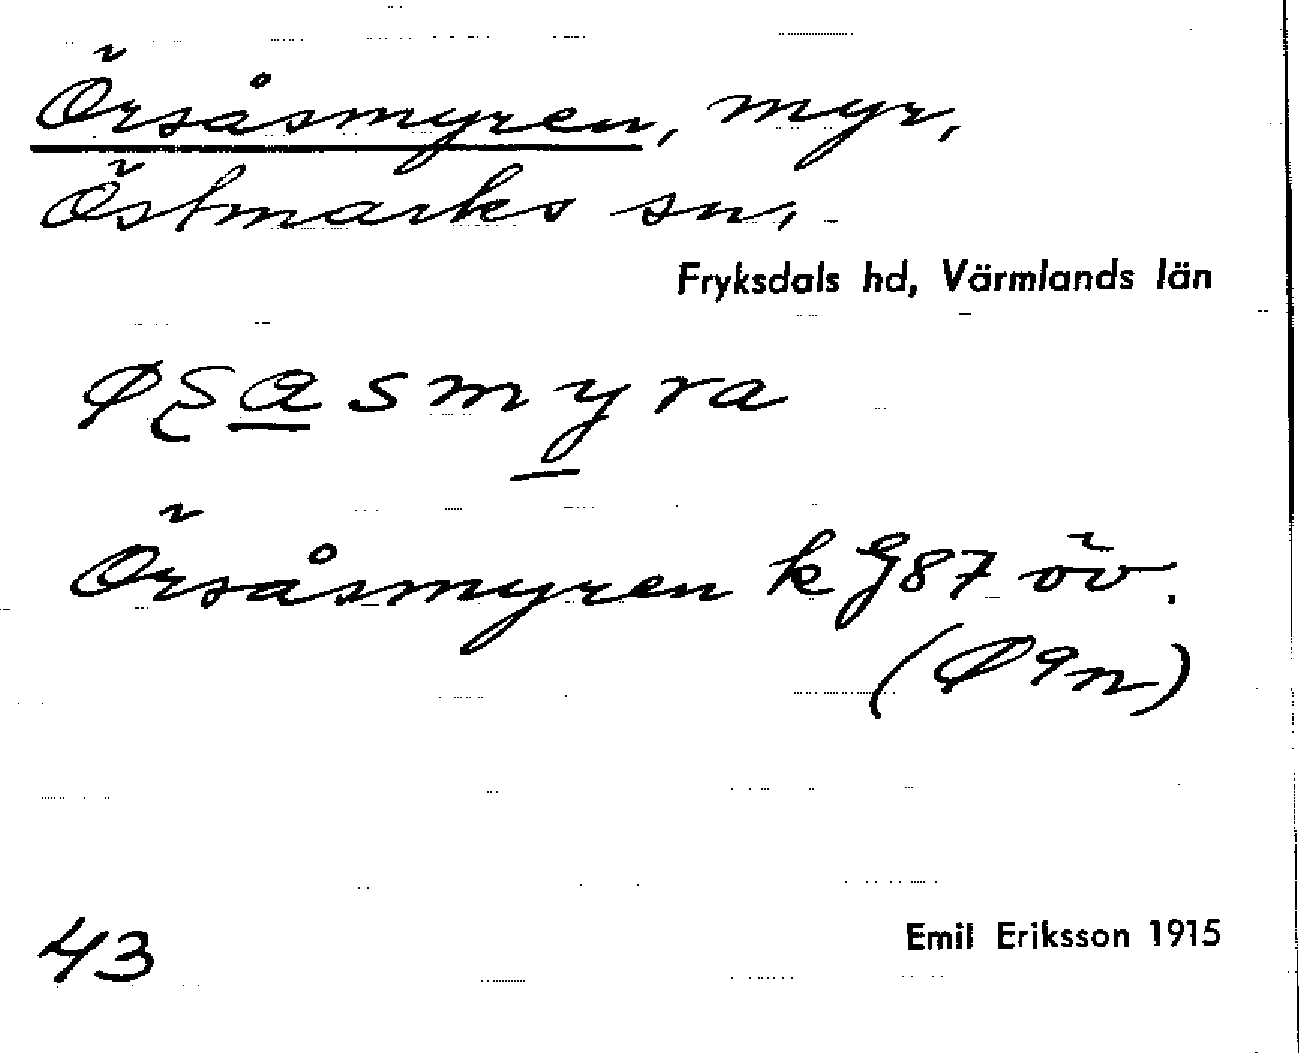 Örsåsmyren, myr,
Östmarks sn,
Fryksdals hd, Värmlands län
smyra
Örsåsmyren k G87 öv.
43
Emil Eriksson 1915